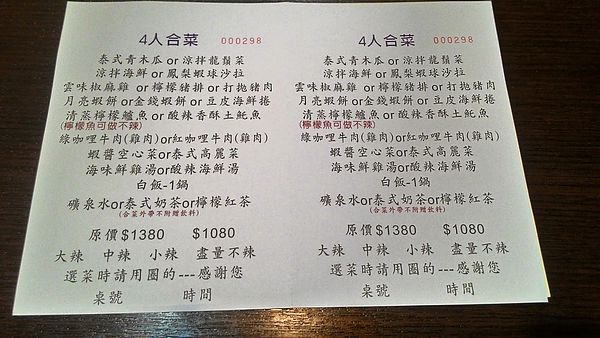 4人合菜 000298
泰式青木瓜or涼拌龍鬚菜
涼拌海鮮or鳳梨蝦球沙拉
雲味椒麻雞or檸檬豬排or打拋豬肉
月亮蝦餅or金錢蝦餅or豆皮海鮮捲
清蒸檸檬鱸魚or酸辣香酥土魠魚
(檸檬魚可做不辣)
綠咖哩牛肉(雞肉)or紅咖哩牛肉(雞肉)
蝦醬空心菜or泰式高麗菜
海味鮮雞湯or酸辣海鮮湯
白飯-1鍋
礦泉水or泰式奶茶or檸檬紅茶
(合菜外帶不附贈飲料)
原價$1380 $1080
大辣 中辣 小辣 盡量不辣
選菜時請用圈的---感謝您
桌號 時間
4人合菜 000298
泰式青木瓜or涼拌龍鬚菜
涼拌海鮮or鳳梨蝦球沙拉
雲味椒麻雞or檸檬豬排or打拋豬肉
月亮蝦餅or金錢蝦餅or豆皮海鮮捲
清蒸檸檬鱸魚or酸辣香酥土魠魚
(檸檬魚可做不辣)
綠咖哩牛肉(雞肉)or紅咖哩牛肉(雞肉)
蝦醬空心菜or泰式高麗菜
海味鮮雞湯or酸辣海鮮湯
白飯-1鍋
礦泉水or泰式奶茶or檸檬紅茶
(合菜外帶不附贈飲料)
原價$1380 $1080
大辣 中辣 小辣 盡量不辣
選菜時請用圈的---感謝您
桌號 時間